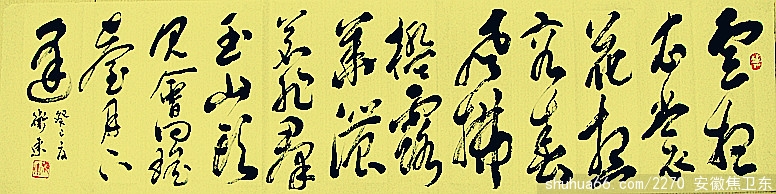 云想
衣裳
花想
容春
风拂
槛露
华浓
若非群
玉山头
见会向瑶
台月下
逢
癸巳夏
卫东
shuhua66.com/2270 安徽焦卫东